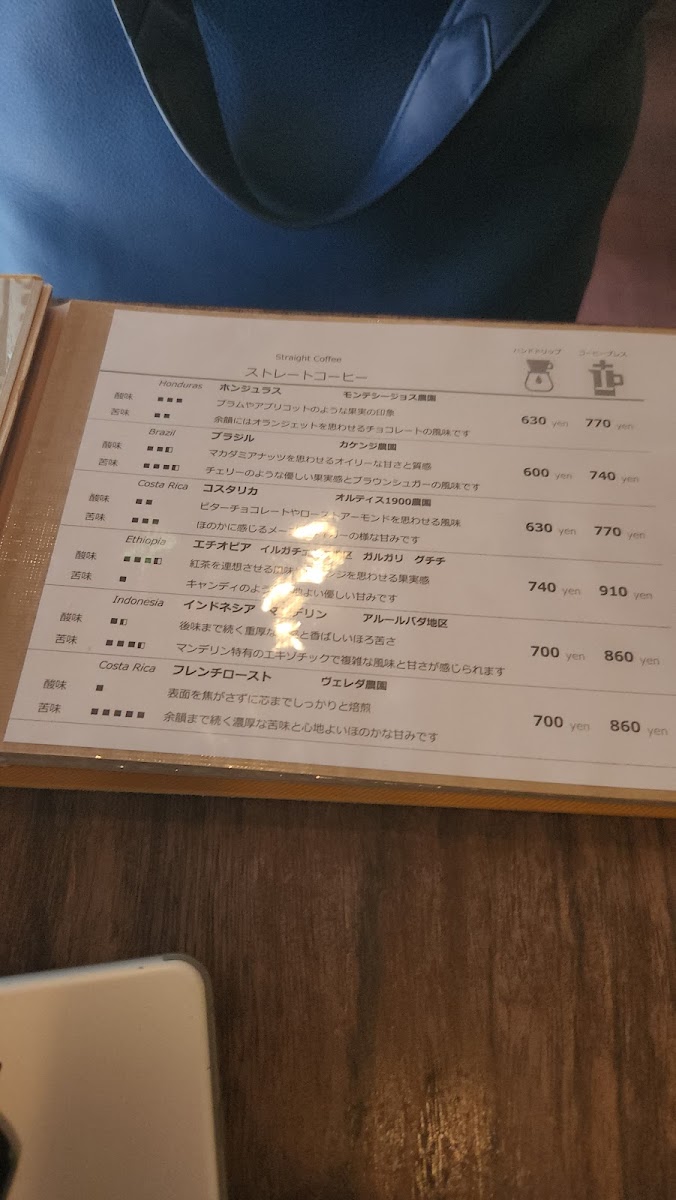 Straight Coffee
ストレートコーヒー
ハンドドリップ コーヒープレス
Honduras ホンジュラス モンテシージョス農園
酸味 ■■■ プラムやアプリコットのような果実の印象
苦味 ■■ 余韻にはオランジェットを思わせるチョコレートの風味です 630 yen 770 yen
Brazil ブラジル カケンジ農園
酸味 マカダミアナッツを思わせるオイリーな甘さと質感
苦味 チェリーのような優しい果実感とブラウンシュガーの風味です 600 yen 740 yen
Costa Rica コスタリカ オルティス1900農園
酸味 ■■ ビターチョコレートやローストアーモンドを思わせる風味
苦味 ■■■ ほのかに感じる の様な甘みです 630 yen 770 yen
Ethiopia エチオピア イルガチェ ガルガリ グチチ
酸味 紅茶を連想させる を思わせる果実感
苦味 ■ キャンディのよう 地よい優しい甘みです 740 yen 910 yen
Indonesia インドネシア デリン アルールバダ地区
酸味 後味まで続く重厚な と香ばしいほろ苦さ
苦味 マンデリン特有のエキゾチックで複雑な風味と甘さが感じられます 700 yen 860 yen
Costa Rica フレンチロースト ヴェレダ農園
酸味 ■ 表面を焦がさずに芯までしっかりと焙煎
苦味 ■■■■■ 余韻まで続く濃厚な苦味と心地よいほのかな甘みです 700 yen 860 yen